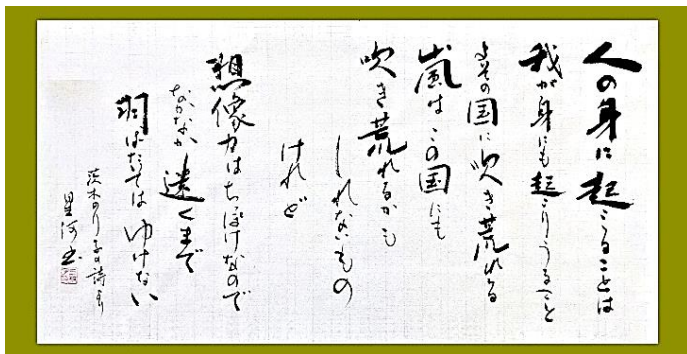 人の身に起こることは
我が身にも起こりうること
よその国に吹き荒れる
嵐はこの国にも
吹き荒れるかも
しれないもの
けれど
想像力はちっぽけなので
なかなか遠くまで
羽ばたいてはゆけない
茨木のり子の詩より
星河書